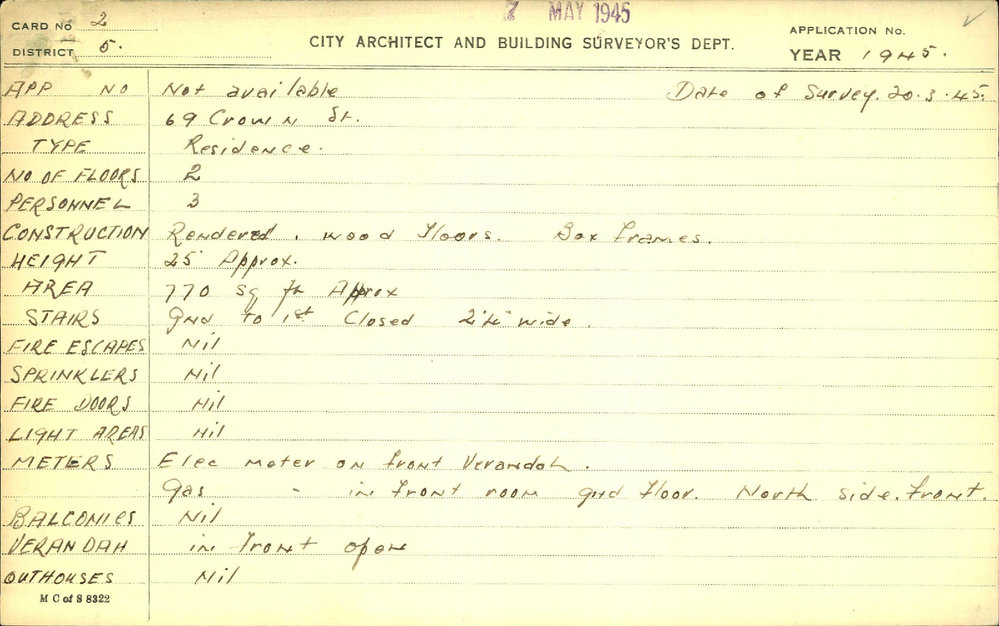 CARD No 2
7 MAY 1945
APPLICATION No.
DISTRICT 5.
CITY ARCHITECT AND BUILDING SURVEYOR'S DEPT.
YEAR 1945.
APP NO Not available Date of Survey. 20.3.45.
ADDRESS 69 Crown St.
TYPE Residence.
NO OF FLOORS 2
PERSONNEL 3
CONSTRUCTION Rendered. wood floors. Box frames.
HEIGHT 25' Approx.
AREA 770 sq ft Approx
STAIRS Gnd to 1st Closed 2'4" wide.
FIRE ESCAPES Nil
SPRINKLERS Nil
FIRE DOORS Nil
LIGHT AREAS Nil
METERS Elec meter on front Verandah.
Gas - in front room gnd floor. North side. front.
BALCONIES Nil
VERANDAH in front open
OUTHOUSES Nil
M C of S 8322